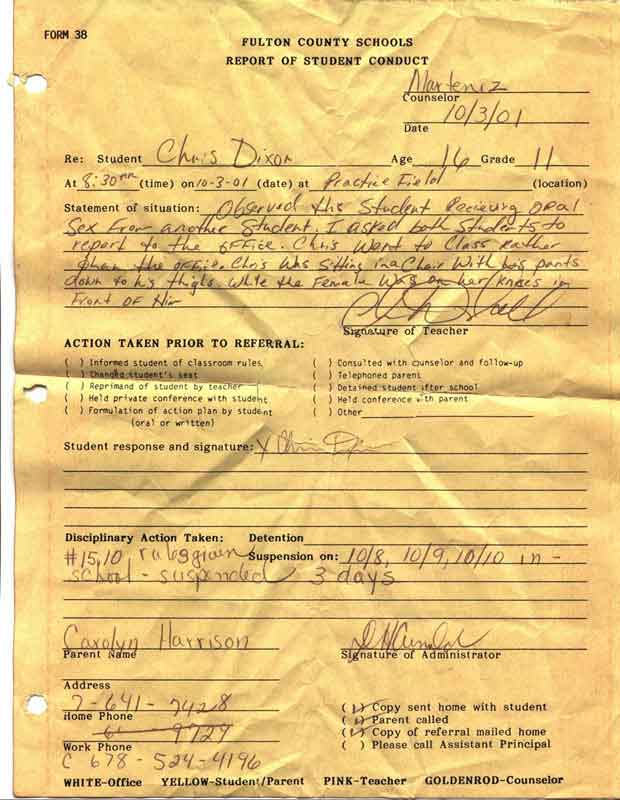 FORM 38
FULTON COUNTY SCHOOLS
REPORT OF STUDENT CONDUCT
Marteniz
Counselor
10/3/01
Date
Re: Student Chris Dixon Age 16 Grade 11
At 8:30 (time) on 10-3-01 (date) at Practice Field (location)
Statement of situation: Observed this Student Recieving oral
Sex From another Student. I asked both Students to
report to the office. Chris Went to Class Rather
than the office. Chris Was Sitting in a Chair With his pants
down to his thighs while the Female Was on her knees in
Front OF Him
Signature of Teacher
ACTION TAKEN PRIOR TO REFERRAL:
( ) Informed student of classroom rules
( ) Changed student's seat
( ) Reprimand of student by teacher
( ) Held private conference with student
( ) Formulation of action plan by student
(oral or written)
( ) Consulted with counselor and follow-up
( ) Telephoned parent
( ) Detained student after school
( ) Held conference with parent
( ) Other
Student response and signature: X Chris Dixon
Disciplinary Action Taken: Detention
#15,10, rules given Suspension on: 10/8, 10/9, 10/10 in-
school-suspended 3 days
Carolyn Harrison
Parent Name
Signature of Administrator
Address
7-641-7428
Home Phone
9729
Work Phone
C 678-524-4196
(1) Copy sent home with student
(1) Parent called
(1) Copy of referral mailed home
( ) Please call Assistant Principal
WHITE-Office YELLOW-Student/Parent PINK-Teacher GOLDENROD-Counselor